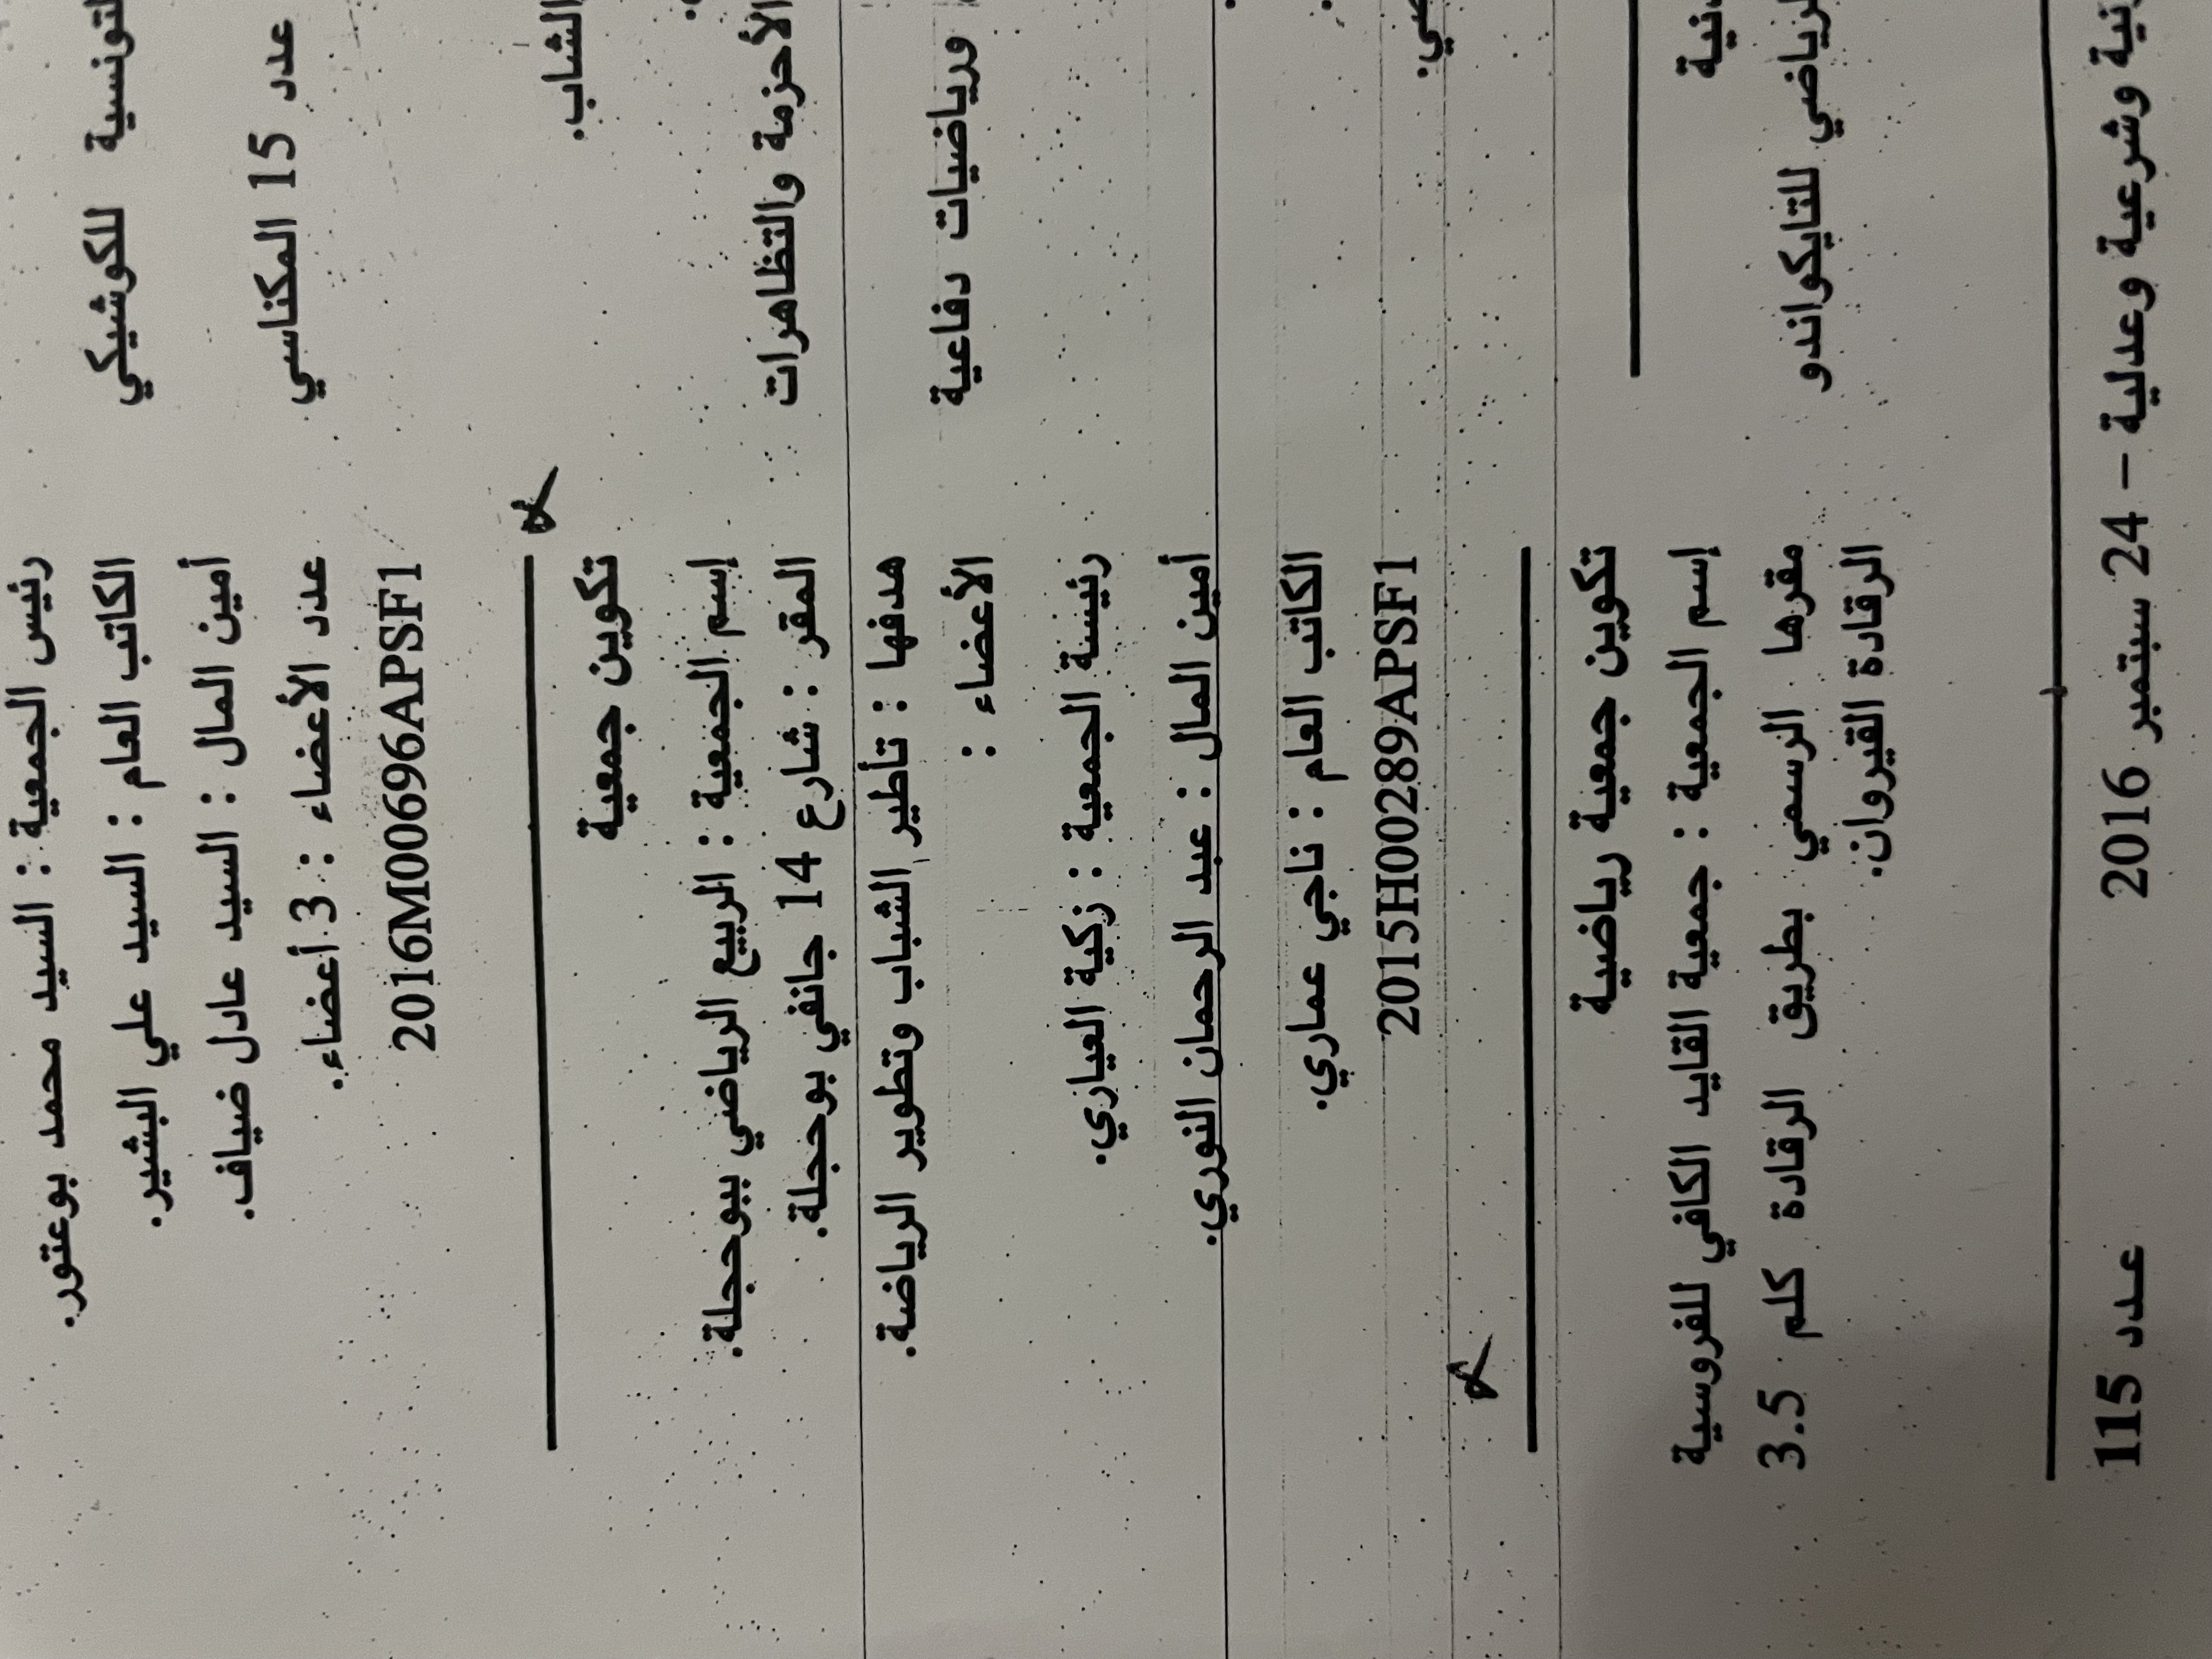 رئيس الجمعية : السيد محمد بوعتور.
الكاتب العام : السيد علي البشير.
أمين المال : السيد عادل ضياف.
عدد الأعضاء : 3 أعضاء.
2016M00696APSF1
تكوين جمعية
إسم الجمعية : الربيع الرياضي ببوحجلة.
المقر : شارع 14 جانفي بوحجلة.
هدفها : تأطير الشباب وتطوير الرياضة.
الأعضاء :
رئيسة الجمعية : زكية العياري.
أمين المال : عبد الرحمان النوري.
الكاتب العام : ناجي عماري.
2015H00289APSF1
تكوين جمعية رياضية
إسم الجمعية : جمعية القايد الكافي للفروسية
مقرها الرسمي بطريق الرقادة كلم 3.5
الرقادة القيروان.
للكوشيكي
عدد 15 المكناسي
الشاب.
الأحزمة والتظاهرات
ورياضيات دفاعية
للتايكواندو
عدد 115
وشرعية وعدلية – 24 سبتمبر 2016